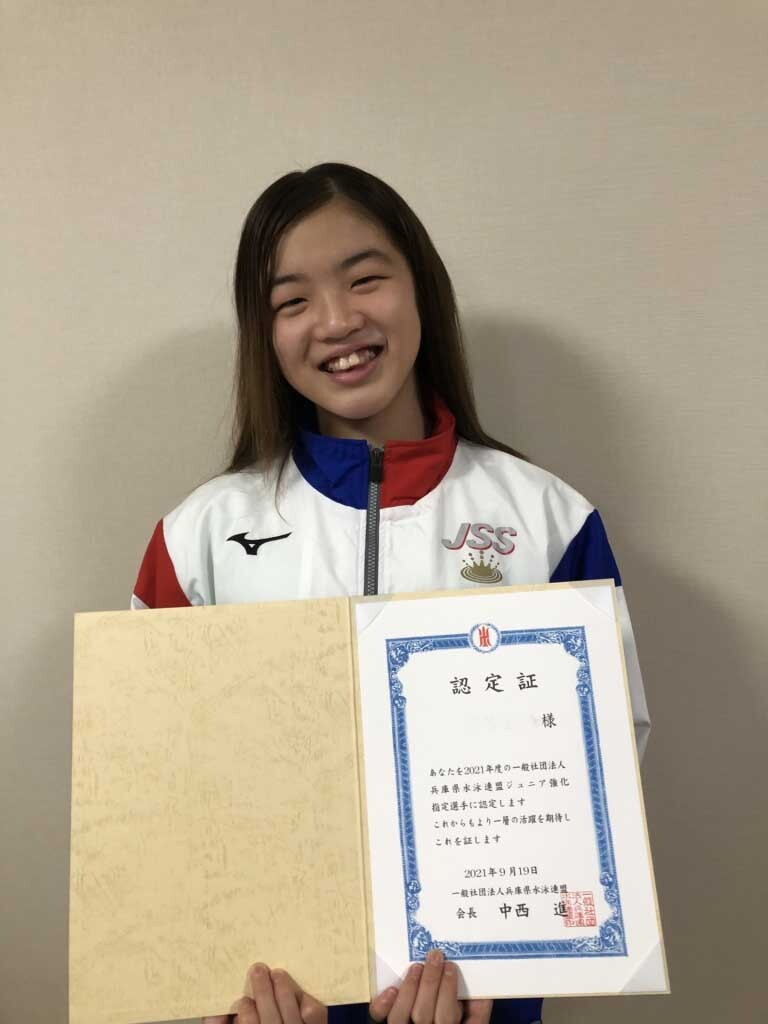 JSS
認定証
様
あなたを2021年度の一般社団法人
兵庫県水泳連盟ジュニア強化
指定選手に認定します
これからもより一層の活躍を期待し
これを証します
2021年9月19日
一般社団法人兵庫県水泳連盟
会長 中西 進